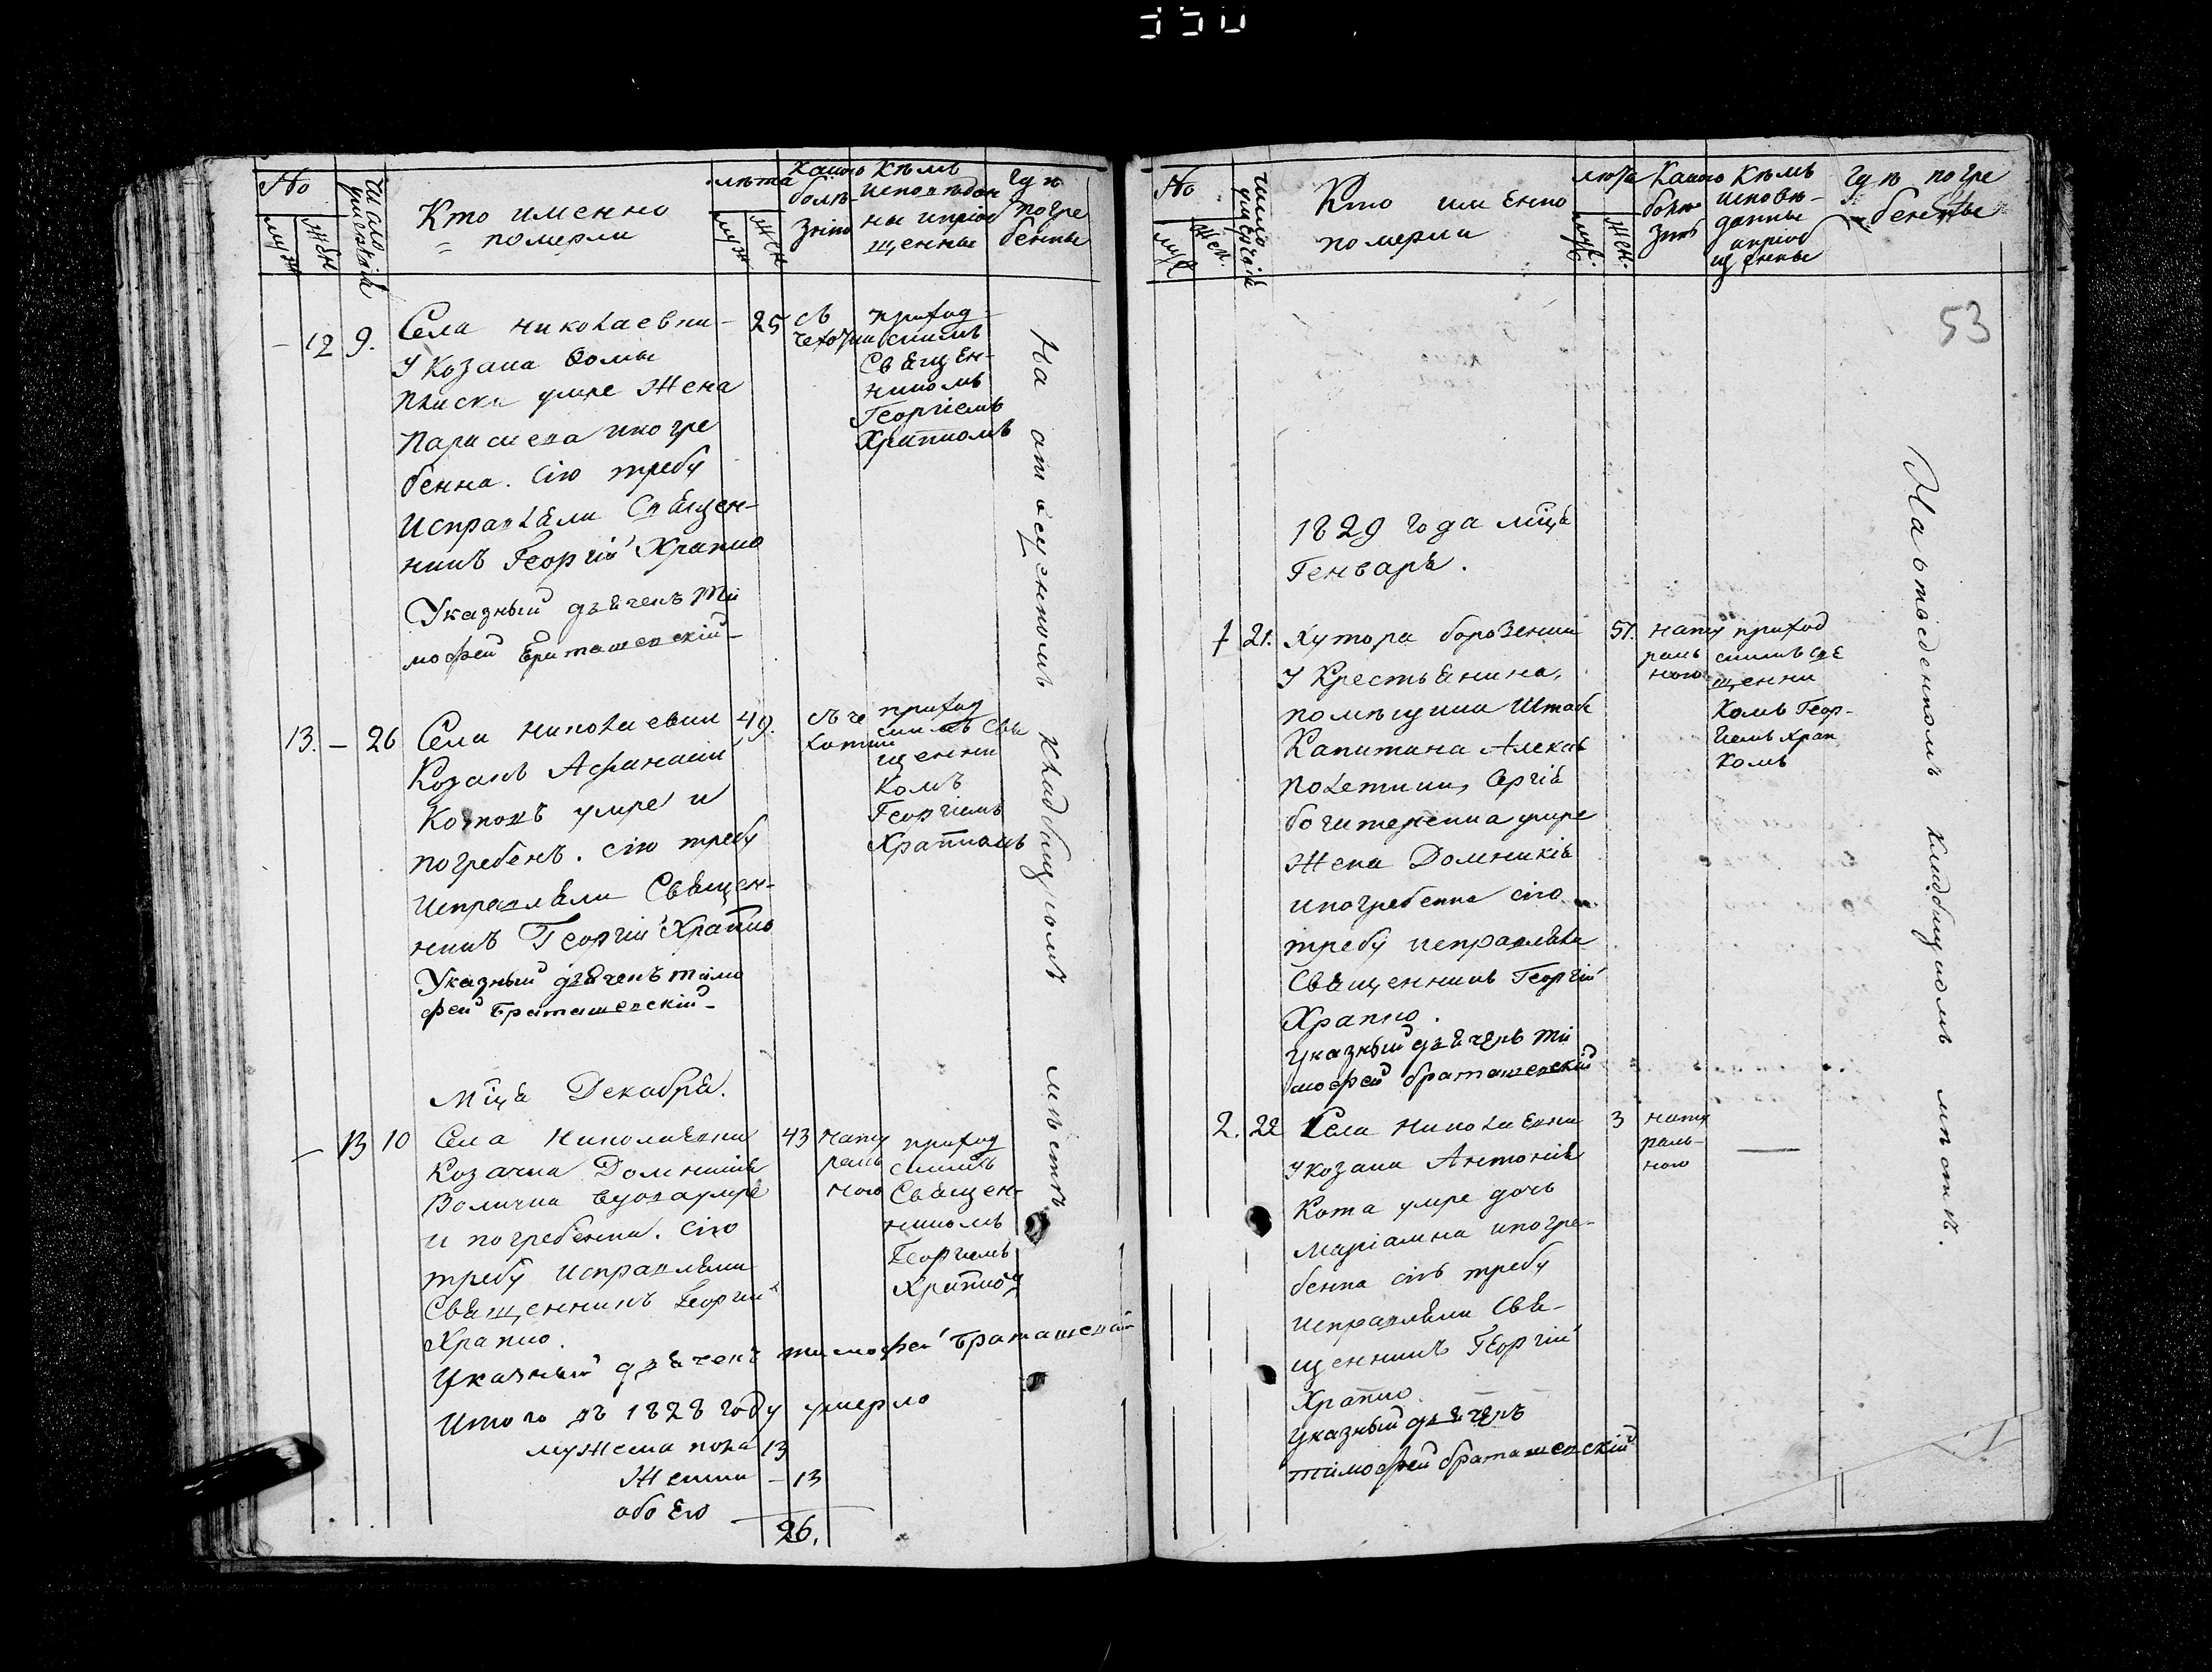 330
No
муж
жен
Число умерший
Кто именно
померли
лѣта
муж
жен
Какою
болѣ-
знію
Кѣмъ
исповѣдан
ны и пріоб
щенны
Гдѣ
погре
бенны
— 12 9.
Села Николаевки — 25
У Козака Ѳомы
Плиски умре Жена
Параскева и погре
бенна. Сію требу
Исправляли Священ-
никъ Георгій Храпко
Указный дьячекъ Ти
мофей Браташевскій
съ
чехотки
приход
скимъ
Священ-
никомъ
Георгіемъ
Храпкомъ
13. — 26
Села Николаевки 49.
Козакъ Афанасій
умре и
погребенъ. Сію требу
Исправляли Священ-
никъ Георгій Храпко
Указный дьячекъ Тимо
фей Браташевскій
съ че
хотки
приход
скимъ Свя
щенни
комъ
Георгіемъ
Храпкомъ
М҃ца Декабря.
— 13 10
Села Николаевки 43
Козачка Домникія
вдова умре
и погребенна. Сію
требу исправляли
Священникъ Георгій
Храпко.
Указный дьячекъ Тимофей Браташевскій
нату
раль
ною
приход
скимъ
Священ-
никомъ
Георгіемъ
Храпко
Итого въ 1828 году умерло
мужеска пола 13
Женска — 13
обоего
26.
На отведенномъ кладбищномъ мѣстѣ
No
муж
жен.
число умерший
Кто именно
померли
лѣта
муж.
жен.
Какою
болѣ
знію
Кѣмъ
исповѣ-
данны
и пріоб
щенны
Гдѣ погре
бенны
53
1829 года м҃ца
Генваря.
1 21.
Хутора 51.
У Крестьянина,
помѣщика Штабъ
Капитана Алексѣ
Полетики, Сергія
умре
Жена Домникія
и погребенна сію
требу исправляли
Священникъ Георгій
Храпко.
Указный дьячекъ Ти
мофей Браташевскій
нату
раль
ною
приход
скимъ свя
щенни
комъ Геор-
гіемъ Храп
комъ
2. 22
Села Николаевки 3
У козака Антонія
Кота умре дочь
Маріамна и погре-
бенна сію требу
исправляли Свя-
щенникъ Георгій
Храпко
Указный дьячекъ
Тимофей Браташевскій
нату
раль-
ною
—
На отведенномъ кладбищномъ мѣстѣ.